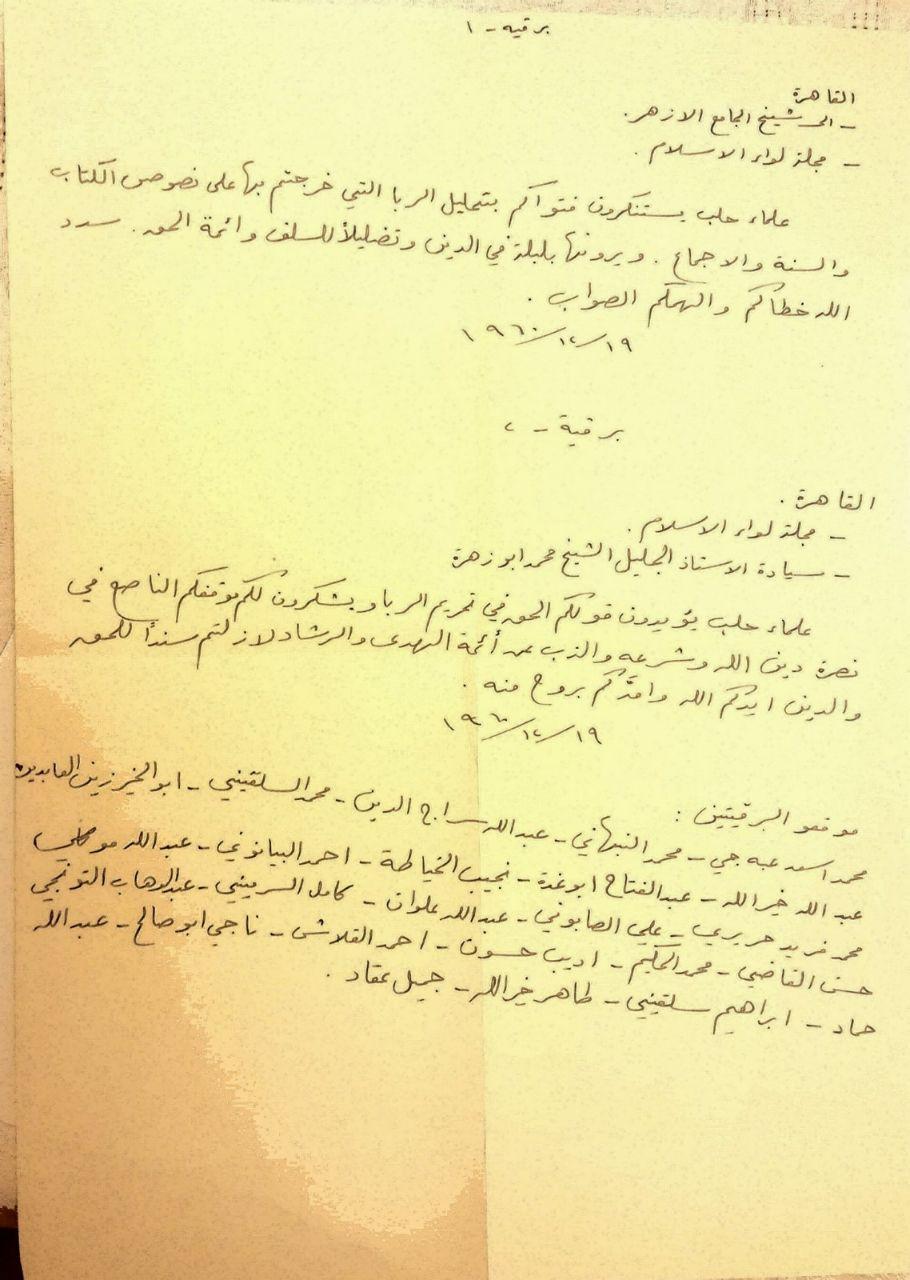 برقيه - ١
القاهرة
- الى شيخ الجامع الازهر.
- مجلة لواء الاسلام.
علماء حلب يستنكرون فتواكم بتحليل الربا التي خرجتم بها على نصوص الكتاب
والسنة والاجماع. ويرونها بلبلة في الدين وتضليلاً للسلف وائمة الحق. سدد
الله خطاكم والهمكم الصواب.
١٩/١٢/١٩٦٠
برقية - ٢
القاهرة.
- مجلة لواء الاسلام.
- سيادة الاستاذ الجليل الشيخ محمد ابو زهرة
علماء حلب يؤيدون قولكم الحق في تحريم الربا ويشكرون لكم موقفكم الناصع في
نصرة دين الله وشرعه والذب عن أئمة الهدى والرشاد لازلتم سنداً للحق
والدين ايدكم الله وامدَّكم بروح منه.
١٩/١٢/١٩٦٠
موقعو البرقيتين:
محمد اسعد عبه جي - محمد النبهاني - عبدالله سراج الدين - محمد السلقيني - ابو الخير زين العابدين
عبد الله خير الله - عبد الفتاح ابو غدة - نجيب الخياطة - احمد البيانوني - عبد الله
محمد فريد حريري - علي الصابوني - عبد الله علوان - كامل السرميني - عبد الوهاب التونجي
حسن القاضي - محمد الحكيم - اديب حسون - احمد القلاش - ناجي ابو صالح - عبد الله
حماد - ابراهيم سلقيني - طاهر خير الله - جميل عقاد.